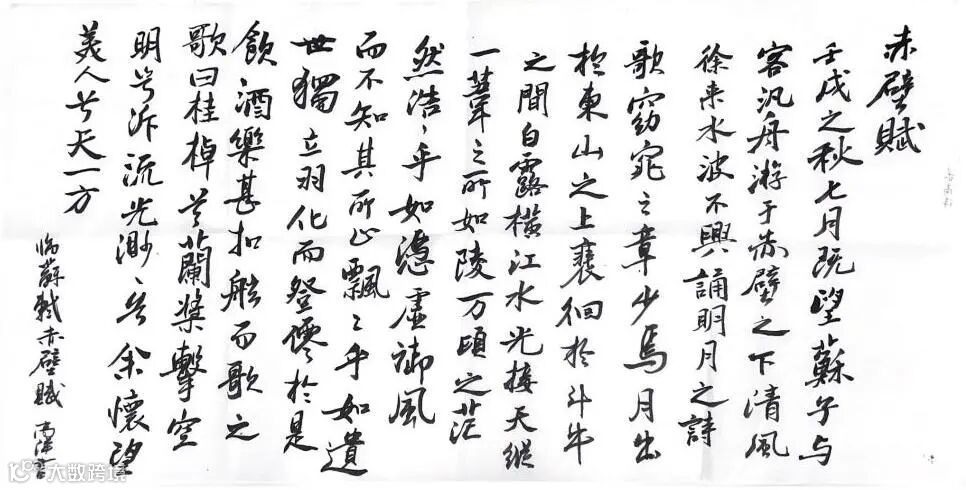 赤壁賦
壬戌之秋七月既望蘇子与
客汎舟游于赤壁之下清風
徐来水波不興誦明月之詩
歌窈窕之章少焉月出
於東山之上裵徊於斗牛
之間白露横江水光接天縱
一葦之所如陵万頃之茫
然浩〻乎如馮虚御風
而不知其所止飄〻乎如遺
世獨立羽化而登僊於是
飲酒樂甚扣舷而歌之
歌曰桂棹兮蘭槳擊空
明兮泝流光渺〻兮余懷望
美人兮天一方
临蘇軾赤壁賦
大数跨境